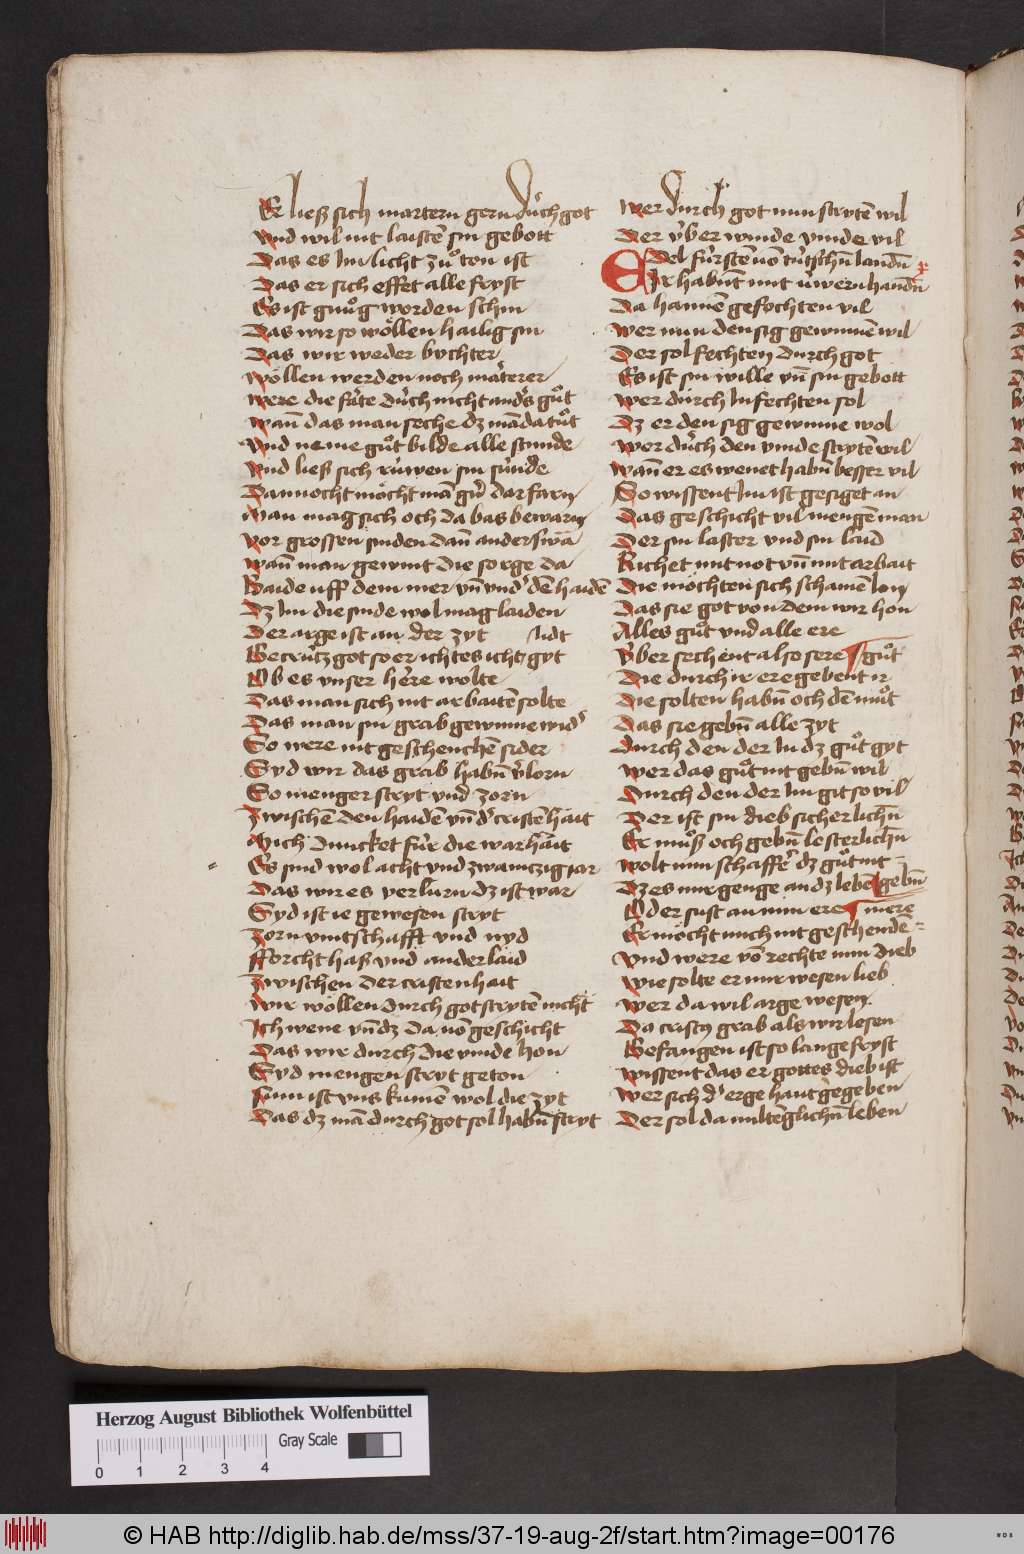 Er ließ sich martern gern durch got
Vnd wil nit laistē sin gebott
Das es Im licht zuͦ ton ist
Das er sich effet alle fryst
Es ist gnuͦg worden schin
Das wir so wöllen hailig sin
Das wir weder buchter
wöllen werden noch märterer
were die fate duͤch nicht andˢs guͦt
wañ das man seche dz mā da tuͦt
Vnd neme guͦt bilde alle stunde
Vnd ließ sich rúwen sin súnde
Dannocht möcht mā gūͦ dar farn
Man mag sich och da bas bewarn
vor grossen sinden dañ anderswā
wañ man gewint die sorge da
Baide uff dem mer vñ vndˢ dē haidē
Dz Im die sinde wol mag laiden
Der arge ist an der zyt
Becrútz got so er ichtes icht gyt lidt
Ob es vnser here wolte
Das man sich nit arbaitē solte
Das man sin grab gewinne widˢ
So were nit geschenchē sider
Syd wir das grab habñ vˢlorn
So menger stryt vnd zorn
Zwischē den haidē vñ dˢ cristēhait
Mich duncket fúr die warhait
Es sind wol acht vnd zwaintzig iar
Das wir es verlurn dz ist war
Syd ist ie gewesen stryt
Zorn vintschafft vnd nyd
fforcht haß vnd ander laid
Zwischen der cristenhait
Wir wöllen durch got strytē nicht
Ich wene vñ dz da uō geschicht
Das wir durch die vinde hon
Syd mengen stryt geton
Nun ist vns kumē wol die zyt
Das dz mā durch got sol habñ stryt
Wer durch got nun strytē wil
Der vͤber winde vinde vil
Edel fúrstē uō tútschñ landñ
Ir habñt mit úwern handñ
Da hainē gefochten vil
Wer nun den sig gewinnē wil
Der sol fechten durch got
Es ist sin wille vñ sin gebott
Wer durch In fechten sol
Dz er den sig gewinne wol
Wer durch den vinde strytē wil
Wañ er es wenet habñ besser vil
So wissent Im ist gesiget an
Das geschicht vil mengē man
Der sin laster vnd sin laid
Richet mit not vñ mit arbait
Die möchten sich schamē lon
Das sie got von dem wir hon
Alles guͦt vnd alle ere
Vͤber sechent also sere
Die durch ir ere gebent ir guͦt
Die solten habñ och dē muͦt
Das sie gebñ alle zyt
Durch den der In dz guͦt gyt
Wer das guͦt nit gebñ wil
Durch den der Im git so vil
Der ist sin dieb sicherlichñ
Er muͦß och gebñ lesterlichñ
Wolt nun schaffēˢ dz guͦt nit
Dz es mir genge an dz lebē gebñ
Oder sust an min ere mere
Er möcht mich nit geschendē
Vnd were vō rechte min dieb
Wie solte er mir wesen lieb
Wer da wil arge wesen
Da cristy grab als wir lesen
Befangen ist so lange fryst
Wissent das er gottes dieb ist
Wer sich dˢ erge haut gegeben
Der sol da mit tēglichñ leben
Herzog August Bibliothek Wolfenbüttel
Gray Scale
0 1 2 3 4
© HAB http://diglib.hab.de/mss/37-19-aug-2f/start.htm?image=00176